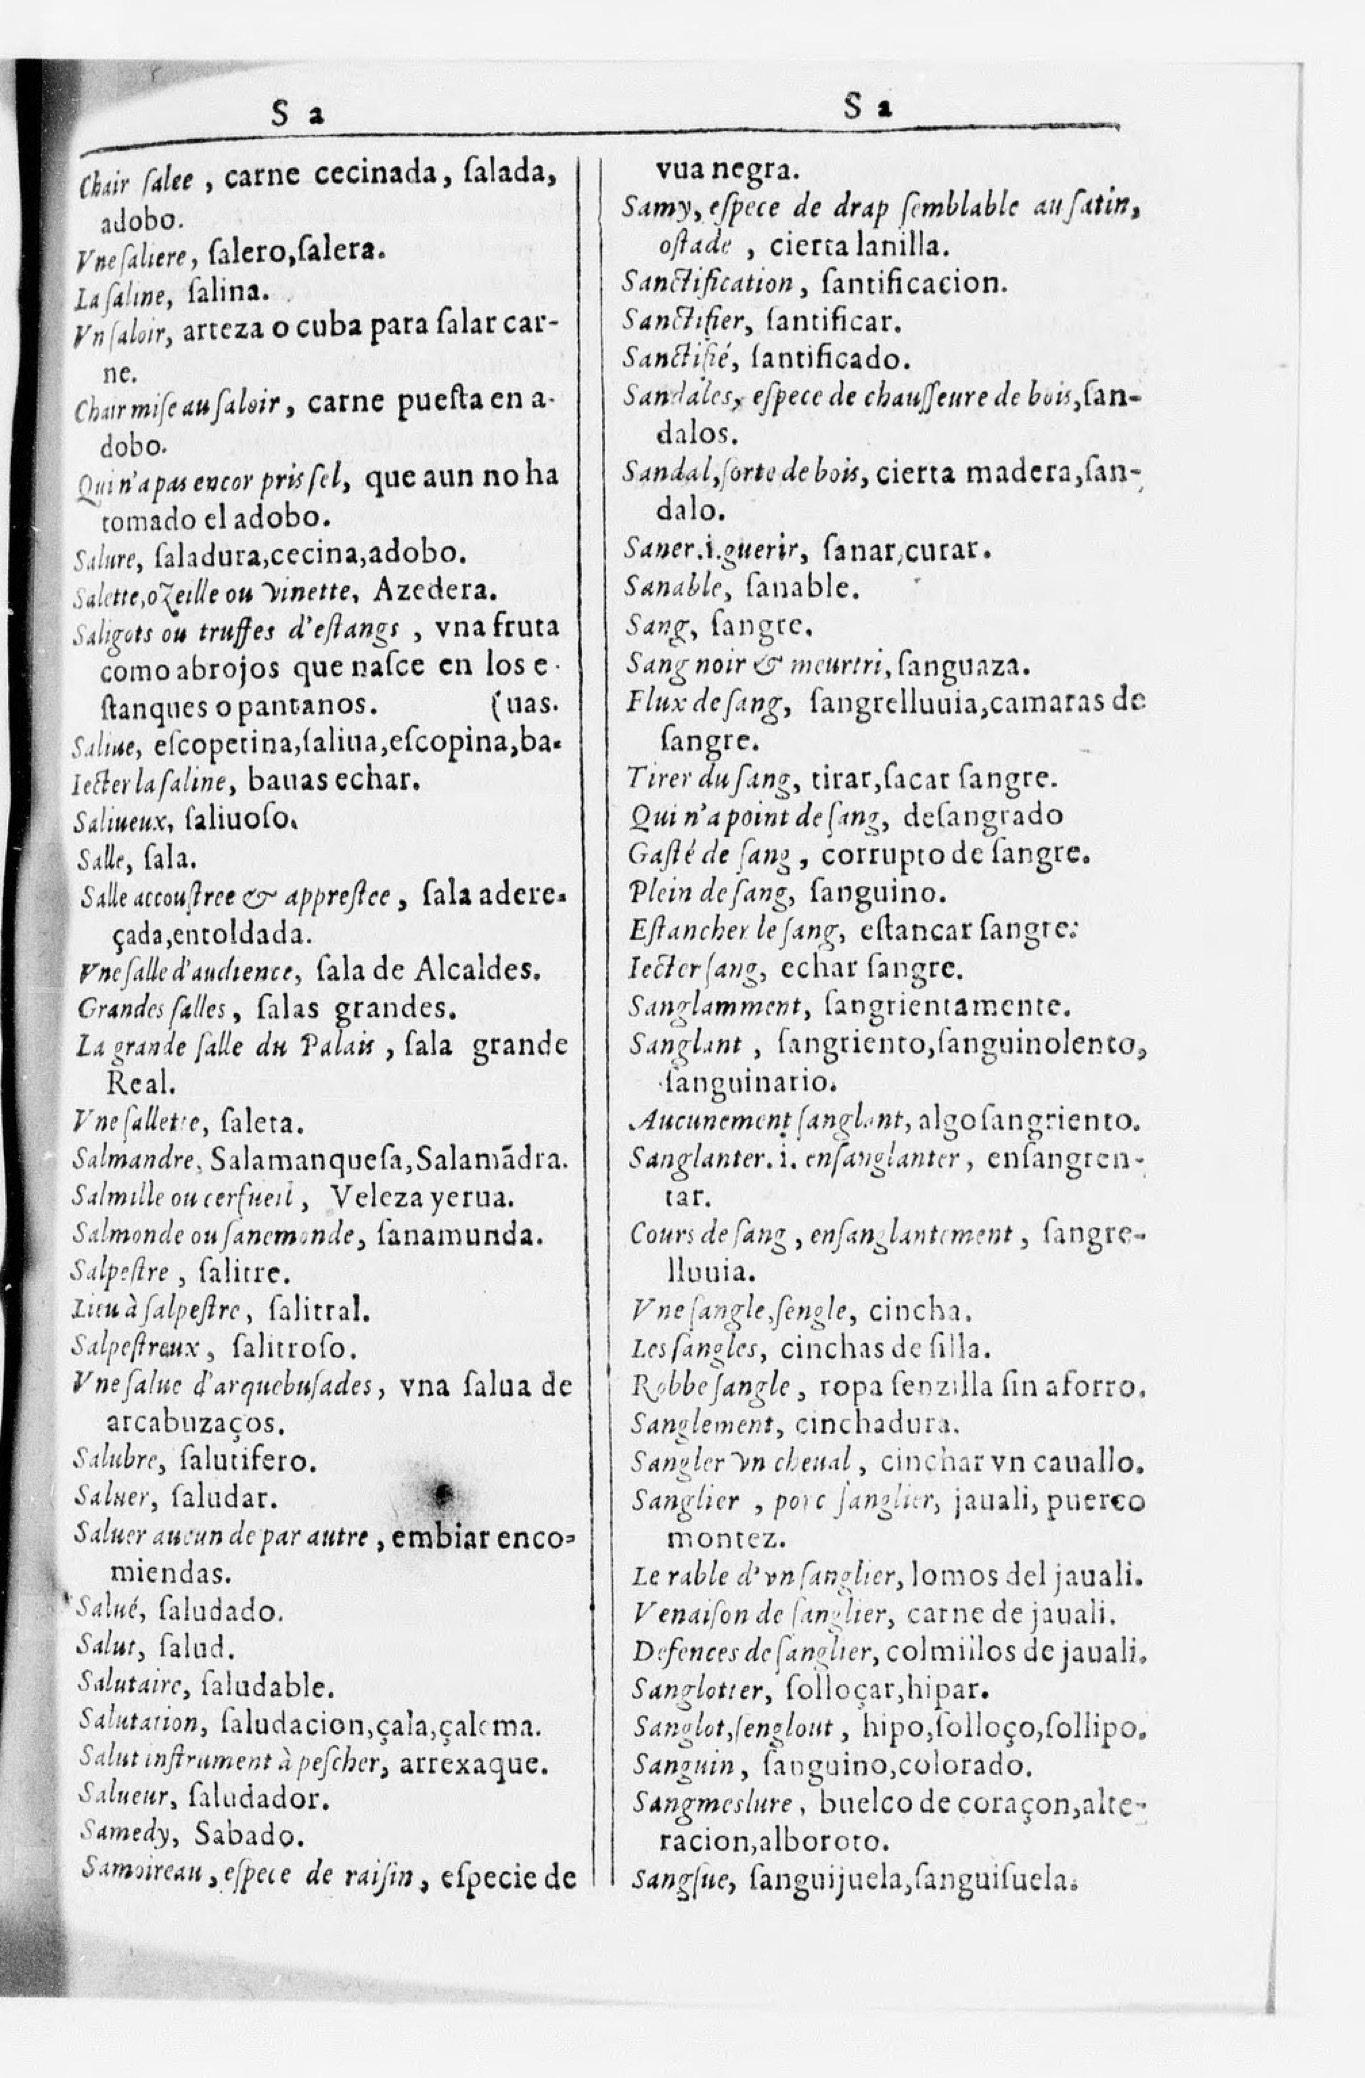 S a
Chair ſalee, carne cecinada, ſalada,
adobo.
Vne ſaliere, ſalero,ſalera.
La ſaline, ſalina.
Vn ſaloir, arteza o cuba para ſalar car-
ne.
Chair miſe au ſaloir, carne pueſta en a-
dobo.
Qui n'a pas encor pris ſel, que aun no ha
tomado el adobo.
Salure, ſaladura,cecina,adobo.
Salette,ozeille ou vinette, Azedera.
Saligots ou truffes d'eſtangs, vna fruta
como abrojos que naſce en los e-
ſtanques o pantanos. (uas.
Saliue, eſcopetina,ſaliua,eſcopina,ba-
Iecter la ſaline, bauas echar.
Saliueux, ſaliuoſo.
Salle, ſala.
Salle accouſtree & appreſtee, ſala adere-
çada,entoldada.
Vne ſalle d'audience, ſala de Alcaldes.
Grandes ſalles, ſalas grandes.
La grande ſalle du Palais, ſala grande
Real.
Vne ſallette, ſaleta.
Salmandre, Salamanqueſa,Salamãdra.
Salmille ou cerfueil, Veleza yerua.
Salmonde ou ſanemonde, ſanamunda.
Salpeſtre, ſalitre.
Lieu à ſalpeſtre, ſalitral.
Salpeſtreux, ſalitroſo.
Vne ſalue d'arquebuſades, vna ſalua de
arcabuzaços.
Salubre, ſalutifero.
Saluer, ſaludar.
Saluer aucun de par autre, embiar enco-
miendas.
Salué, ſaludado.
Salut, ſalud.
Salutaire, ſaludable.
Salutation, ſaludacion,çala,çalema.
Salut inſtrument à peſcher, arrexaque.
Salueur, ſaludador.
Samedy, Sabado.
Samoireau, eſpece de raiſin, eſpecie de
S a
vua negra.
Samy, eſpece de drap ſemblable au ſatin,
oſtade, cierta lanilla.
Sanctification, ſantificacion.
Sanctifier, ſantificar.
Sanctifié, ſantificado.
Sandales, eſpece de chauſſeure de bois,ſan-
dalos.
Sandal,ſorte de bois, cierta madera,ſan-
dalo.
Saner.i.guerir, ſanar,curar.
Sanable, ſanable.
Sang, ſangre.
Sang noir & meurtri, ſanguaza.
Flux de ſang, ſangrelluuia,camaras de
ſangre.
Tirer du ſang, tirar,ſacar ſangre.
Qui n'a point de ſang, deſangrado
Gaſté de ſang, corrupto de ſangre.
Plein de ſang, ſanguino.
Eſtancher le ſang, eſtancar ſangre:
Iecter ſang, echar ſangre.
Sanglamment, ſangrientamente.
Sanglant, ſangriento,ſanguinolento,
ſanguinario.
Aucunement ſanglant, algo ſangriento.
Sanglanter. i. enſanglanter, enſangren-
tar.
Cours de ſang, enſanglantement, ſangre-
lluuia.
Vne ſangle,ſengle, cincha.
Les ſangles, cinchas de ſilla.
Robbe ſangle, ropa ſenzilla ſin aforro.
Sanglement, cinchadura.
Sangler vn cheual, cinchar vn cauallo.
Sanglier, porc ſanglier, jauali, puerco
montez.
Le rable d'vn ſanglier, lomos del jauali.
Venaiſon de ſanglier, carne de jauali.
Defences de ſanglier, colmillos de jauali.
Sanglotter, ſolloçar,hipar.
Sanglot,ſenglout, hipo,ſolloço,ſollipo.
Sanguin, ſanguino,colorado.
Sangmeslure, buelco de coraçon,alte-
racion,alboroto.
Sangſue, ſanguijuela,ſanguiſuela.